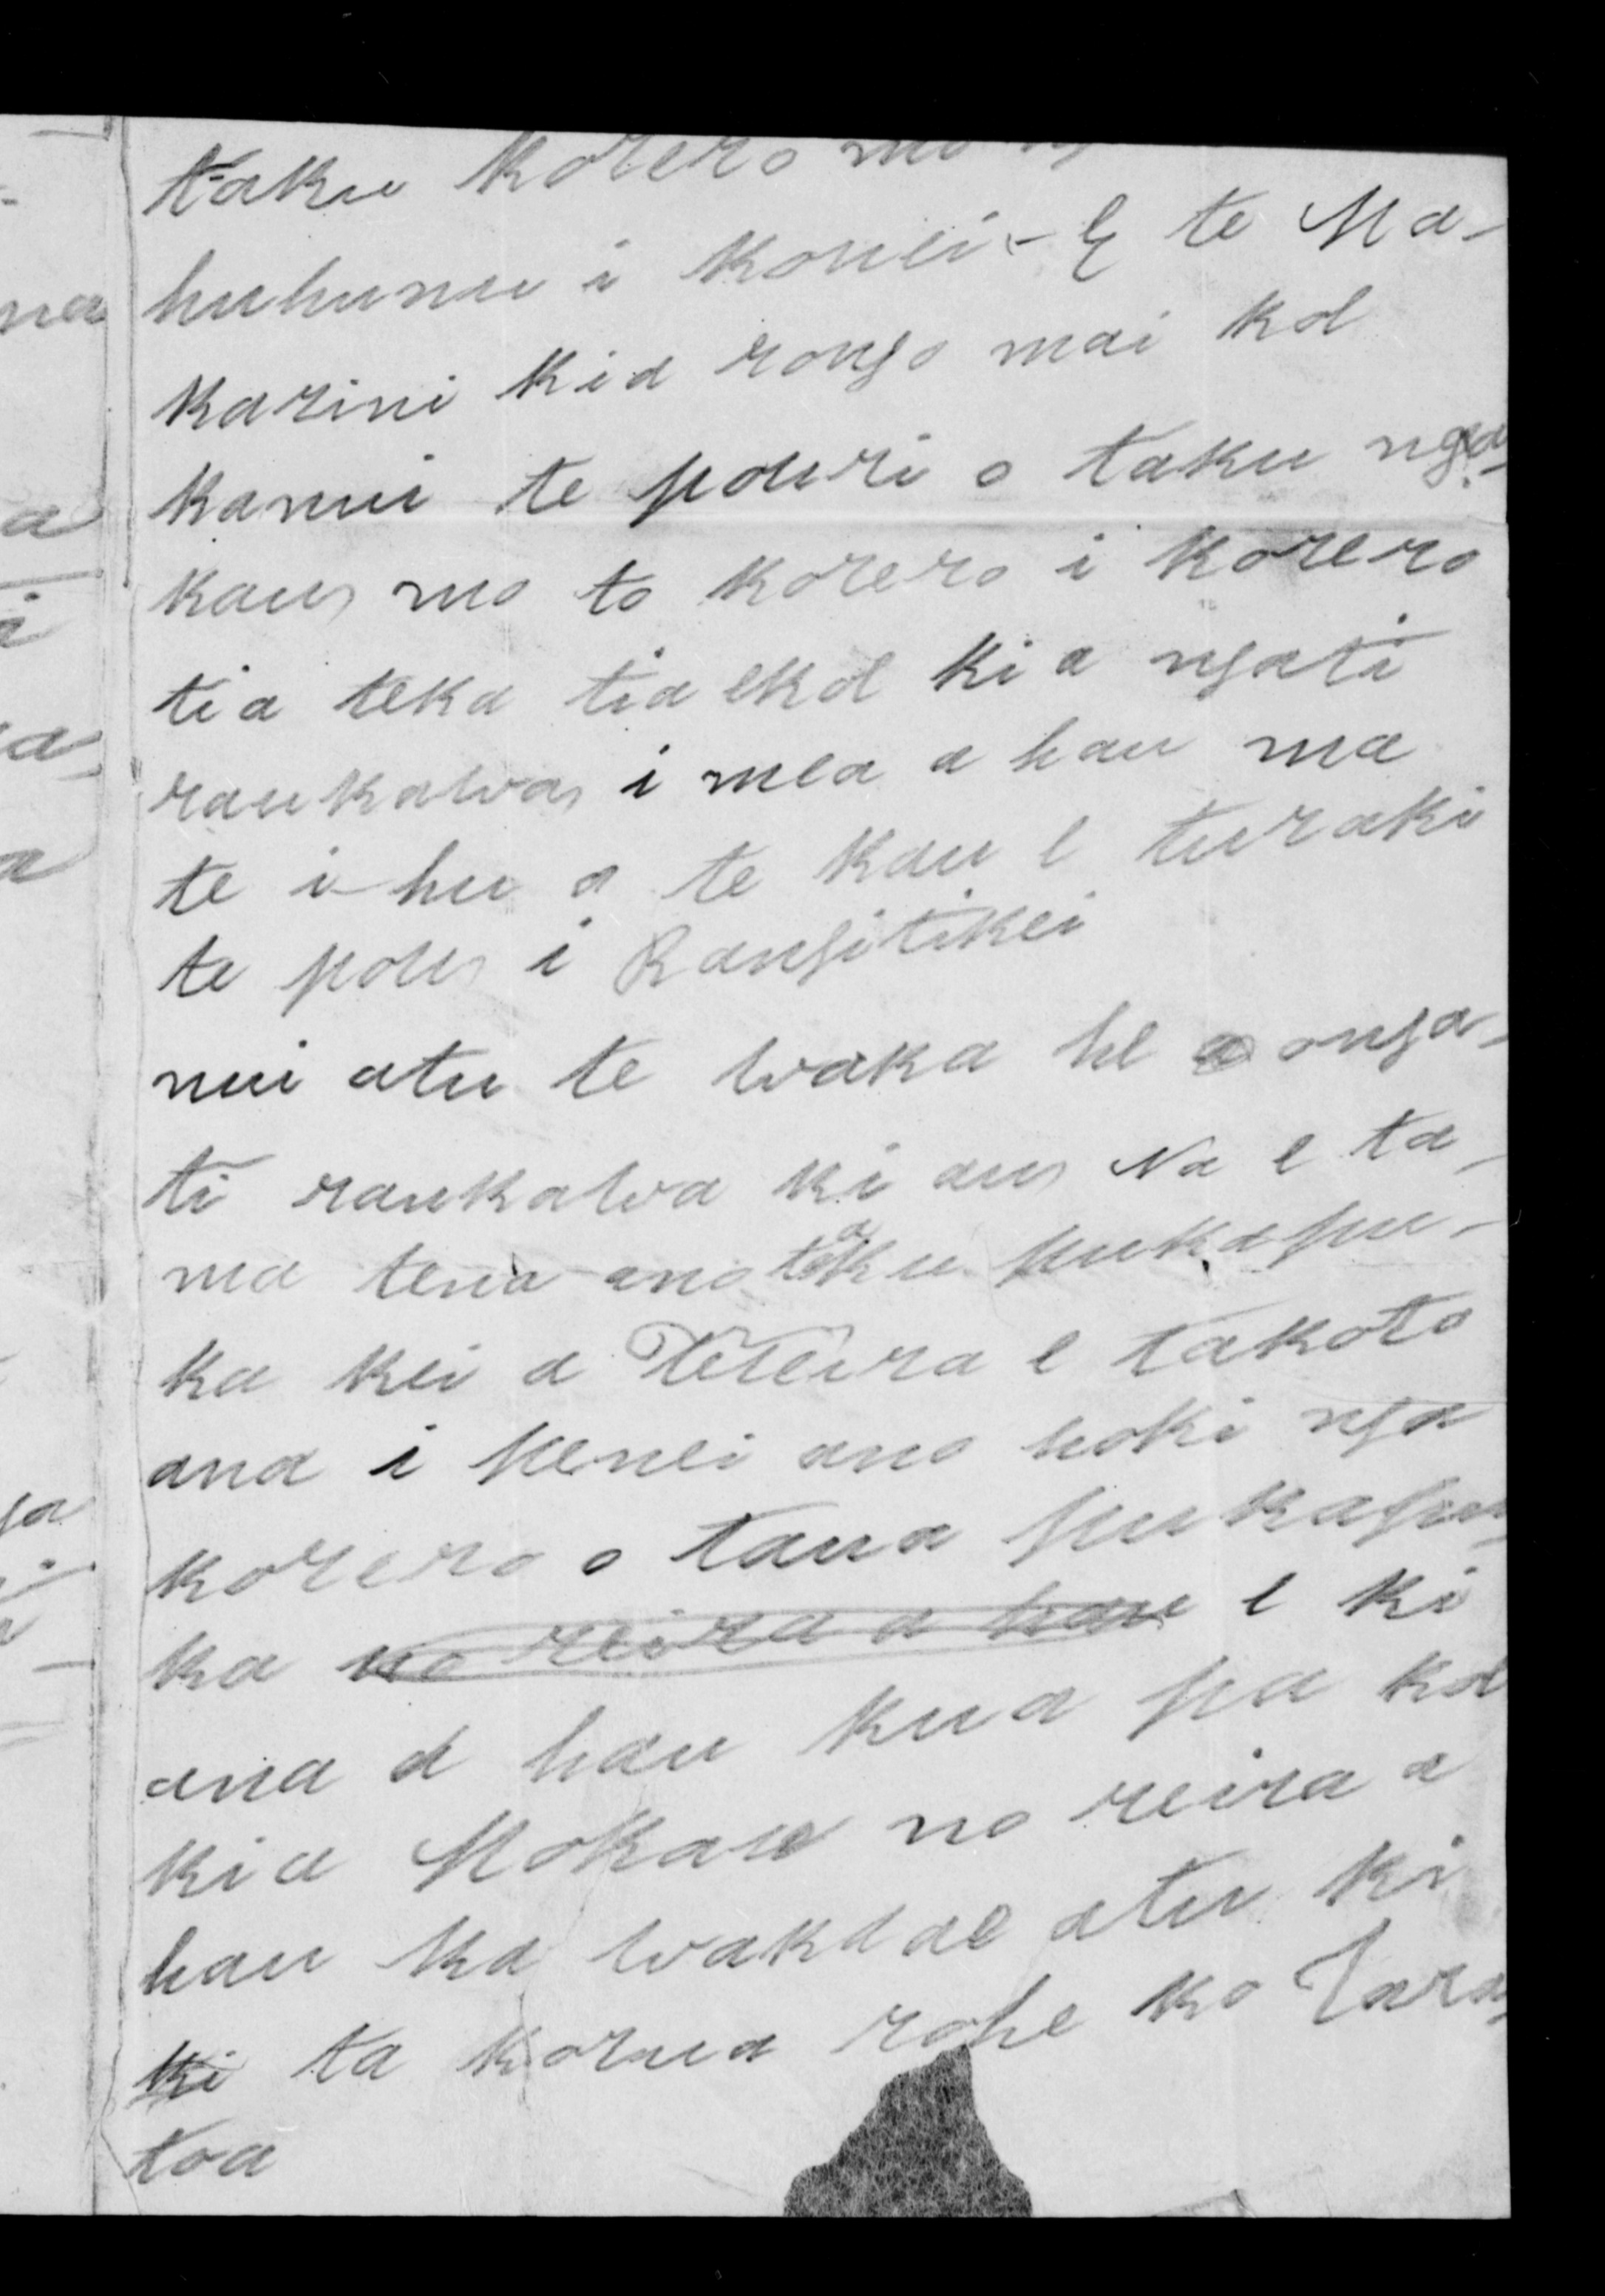 taku korero mo
huhunu i konei - E te Ma-
karini kia rongo mai koe
kanui te pouri o taku nga-
kau, mo to korero i korero
tia teka tia ekoe ki a ngati
raukawa, i mea a hau ma
te i-hu o te kau e turaki
te pou, i Rangitikei
nui atu te waka he a onga-
ti raukawa ki au, Na e ta-
ma tena ano taku pukapu-
ka kei a Teteira e takoto
ana i kenei ano hoki nga
korero o taua pukapu-
ka no reira a hau e ki
ana a hau kua pa koe
ki a Mokau no reira a
hau ka wakaae atu ki
ki ta korua rohe ko Tara-
toa
na
a
i
a
a
ga